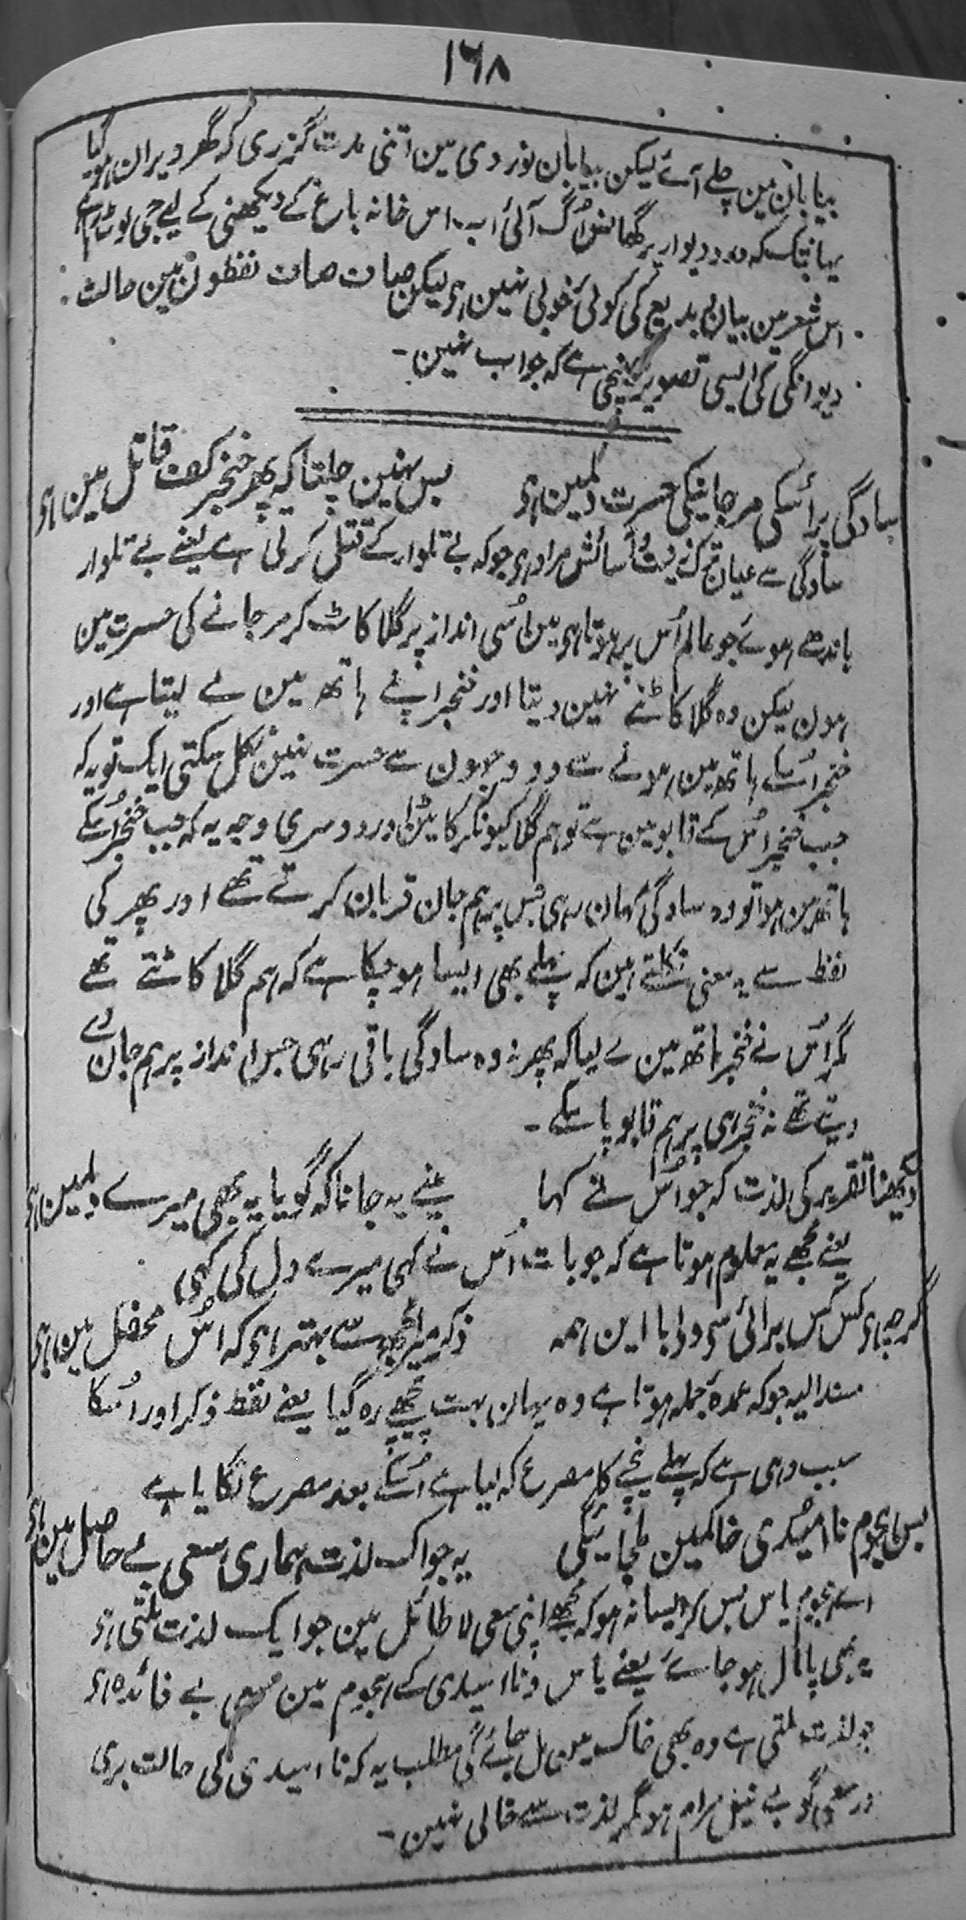 ۱۶۸
بیابان مین چلے آئے لیکن بیابان نوردی مین اتنی مدت گزری کہ گھر ویران ہوگیا
یہانتک کہ در و دیوار پر گھانس اُگ آئی اب اس خانہ باغ کے دیکھنے کے لیے جی لوٹ رہا ہے
اس شعر مین بیان و بدیع کی کوئی خوبی نہین ہو لیکن صاف صاف لفظون مین حالت
دیوانگی کی ایسی تصویر کھینچی ہے کہ جواب نہین ۔
سادگی پر اُسکی مر جانیکی حسرت دلمین ہو بس نہین چلتا کہ پھر خنجر کف قاتل مین ہو
سادگی سے عیان ترک زینت و آسائش مراد ہو جو کہ بے تلوار کے قتل کرتی ہے یعنے بے تلوار
باندھے ہوئے جو عالم اُس پر ہوتا ہو مین اُسی انداز پر گلا کاٹ کر مر جانے کی حسرت مین
ہون لیکن وہ گلا کاٹنے نہین دیتا اور خنجر اپنے ہاتھ مین لے لیتا ہے اور
خنجر اُسکے ہاتھ مین ہونے سے دو وجہون سے حسرت نہین نکل سکتی ایک تو یہ کہ
جب خنجر اُس کے قابو مین ہے تو ہم گلا کیونکر کاٹین اور دوسری وجہ یہ کہ جب خنجر اُسکے
ہاتھ مین ہوا تو وہ سادگی کہان رہی جس پر ہم جان قربان کرتے تھے اور پھر کی
لفظ سے یہ معنی نکلتے ہین کہ پہلے بھی ایسا ہو چکا ہے کہ ہم گلا کاٹتے تھے
مگر اُس نے خنجر ہاتھ مین لے لیا کہ پھر نہ وہ سادگی باقی رہی جس انداز پر ہم جان دے
دیتے تھے نہ خنجر ہی پر ہم قابو پا سکے ۔
دیکھنا تقریر کی لذت کہ جو اُس نے کہا مینے یہ جانا کہ گویا یہ بھی میرے دلمین ہو
یعنے مجھے یہ معلوم ہوتا ہے کہ جو بات اُس نے کہی میرے دل کی کہی
گرچہ ہو کس کس برائی سے ولے با این ہمہ ذکر میرا مجھ سے بہتر ہو کہ اُس محفل مین ہو
مسند الیہ جو کہ عمدۂ جملہ ہوتا ہے وہ یہان بہت پیچھے رہ گیا یعنے لفظ ذکر اور اُسکا
سبب وہی ہے کہ پہلے نیچے کا مصرع کہ لیا ہے اُسکے بعد مصرع لگایا ہے
بس ہجوم ناامیدی خاکمین ملجائیگی یہ جو اک لذت ہماری سعی بے حاصل مین ہو
اے ہجوم یاس بس کر ایسا نہو کہ مجھے اپنی سعی لاطائل مین جو ایک لذت ملتی ہو
یہ بھی پامال ہو جائے یعنے یاس و ناامیدی کے ہجوم مین سعی بے فائدہ ہو
جو لذت ملتی ہے وہ بھی خاک مین مل جائے گی مطلب یہ کہ ناامیدی کی حالت بری
اور سعی گو بے نیل مرام ہو مگر لذت سے خالی نہین ۔